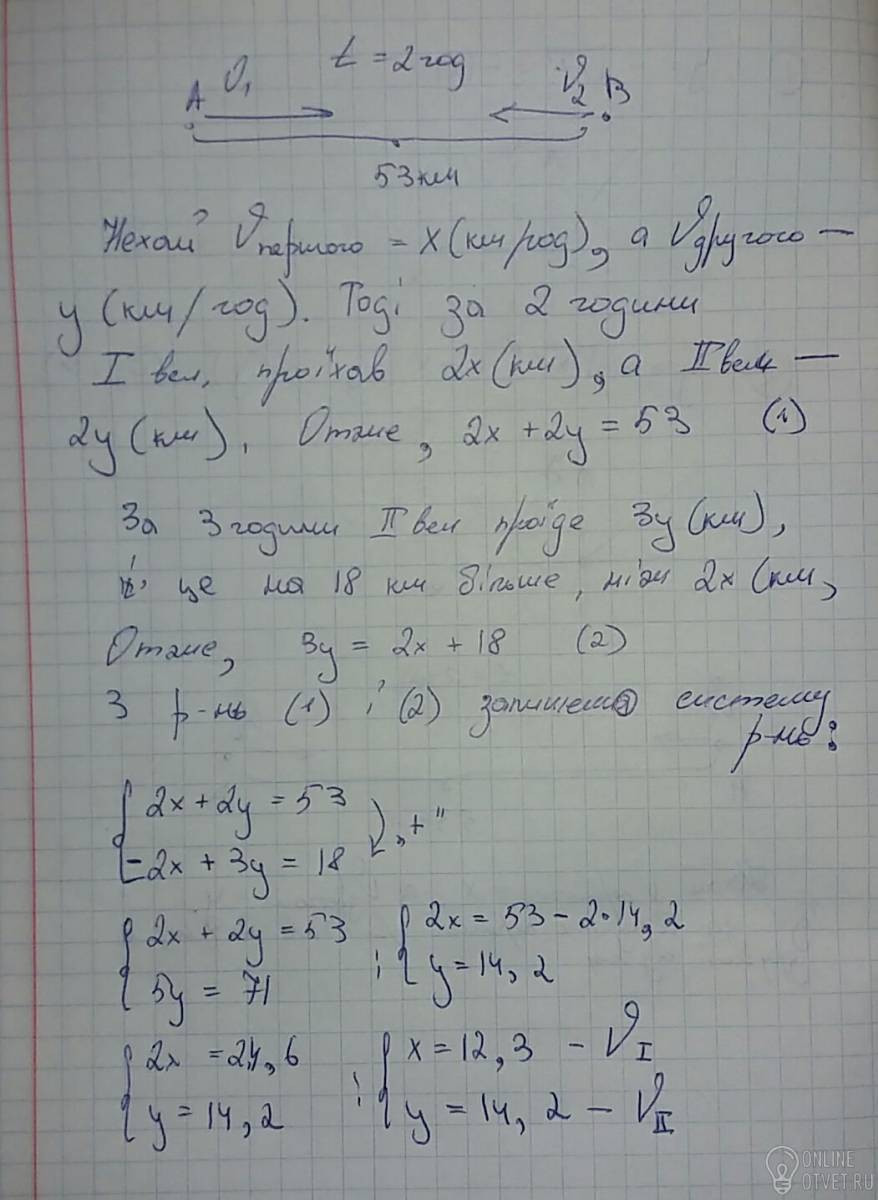 t = 2 год
A V₁ V₂ B
53 км
Нехай Vпершого = x (км/год), а Vдругого —
y (км/год). Тоді за 2 години
I вел. проїхав 2x (км), а II вел —
2y (км). Отже, 2x + 2y = 53 (1)
За 3 години II вел проїде 3y (км),
і це на 18 км більше, ніж 2x (км,
Отже, 3y = 2x + 18 (2)
З р-нь (1) і (2) запишемо систему
р-нь:
2x + 2y = 53
-2x + 3y = 18 „+"
2x + 2y = 53 ; 2x = 53 - 2·14,2
5y = 71 y = 14,2
2x = 24,6 ; x = 12,3 - V I
y = 14,2 y = 14,2 - V II
ONLINE
OTVET.RU